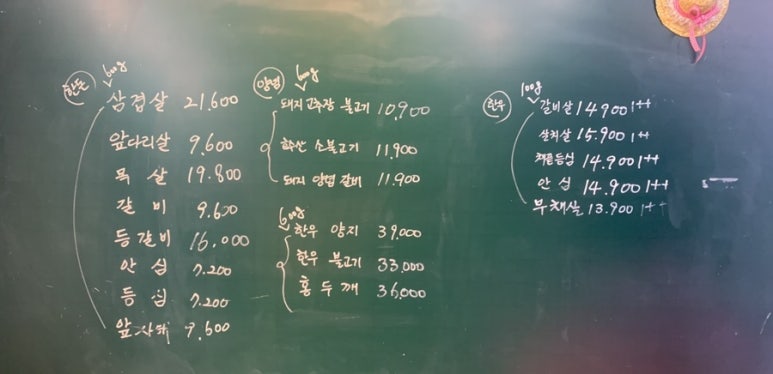 한돈 600g
삼겹살 21,600
앞다리살 9,600
목살 19.800
갈비 9.600
등갈비 16,000
안심 7.200
등심 7,200
앞사태 7,600
양념 600g
돼지고추장 불고기 10,900
소불고기 11,900
돼지 양념 갈비 11.900
600g
한우 양지 39,000
한우 불고기 33,000
홍두깨 36,000
한우 100g
갈비살 14.900 1++
살치살 15.900 1++
채끝등심 14.900 1++
안심 14.900 1++
부채살 13.900 1++